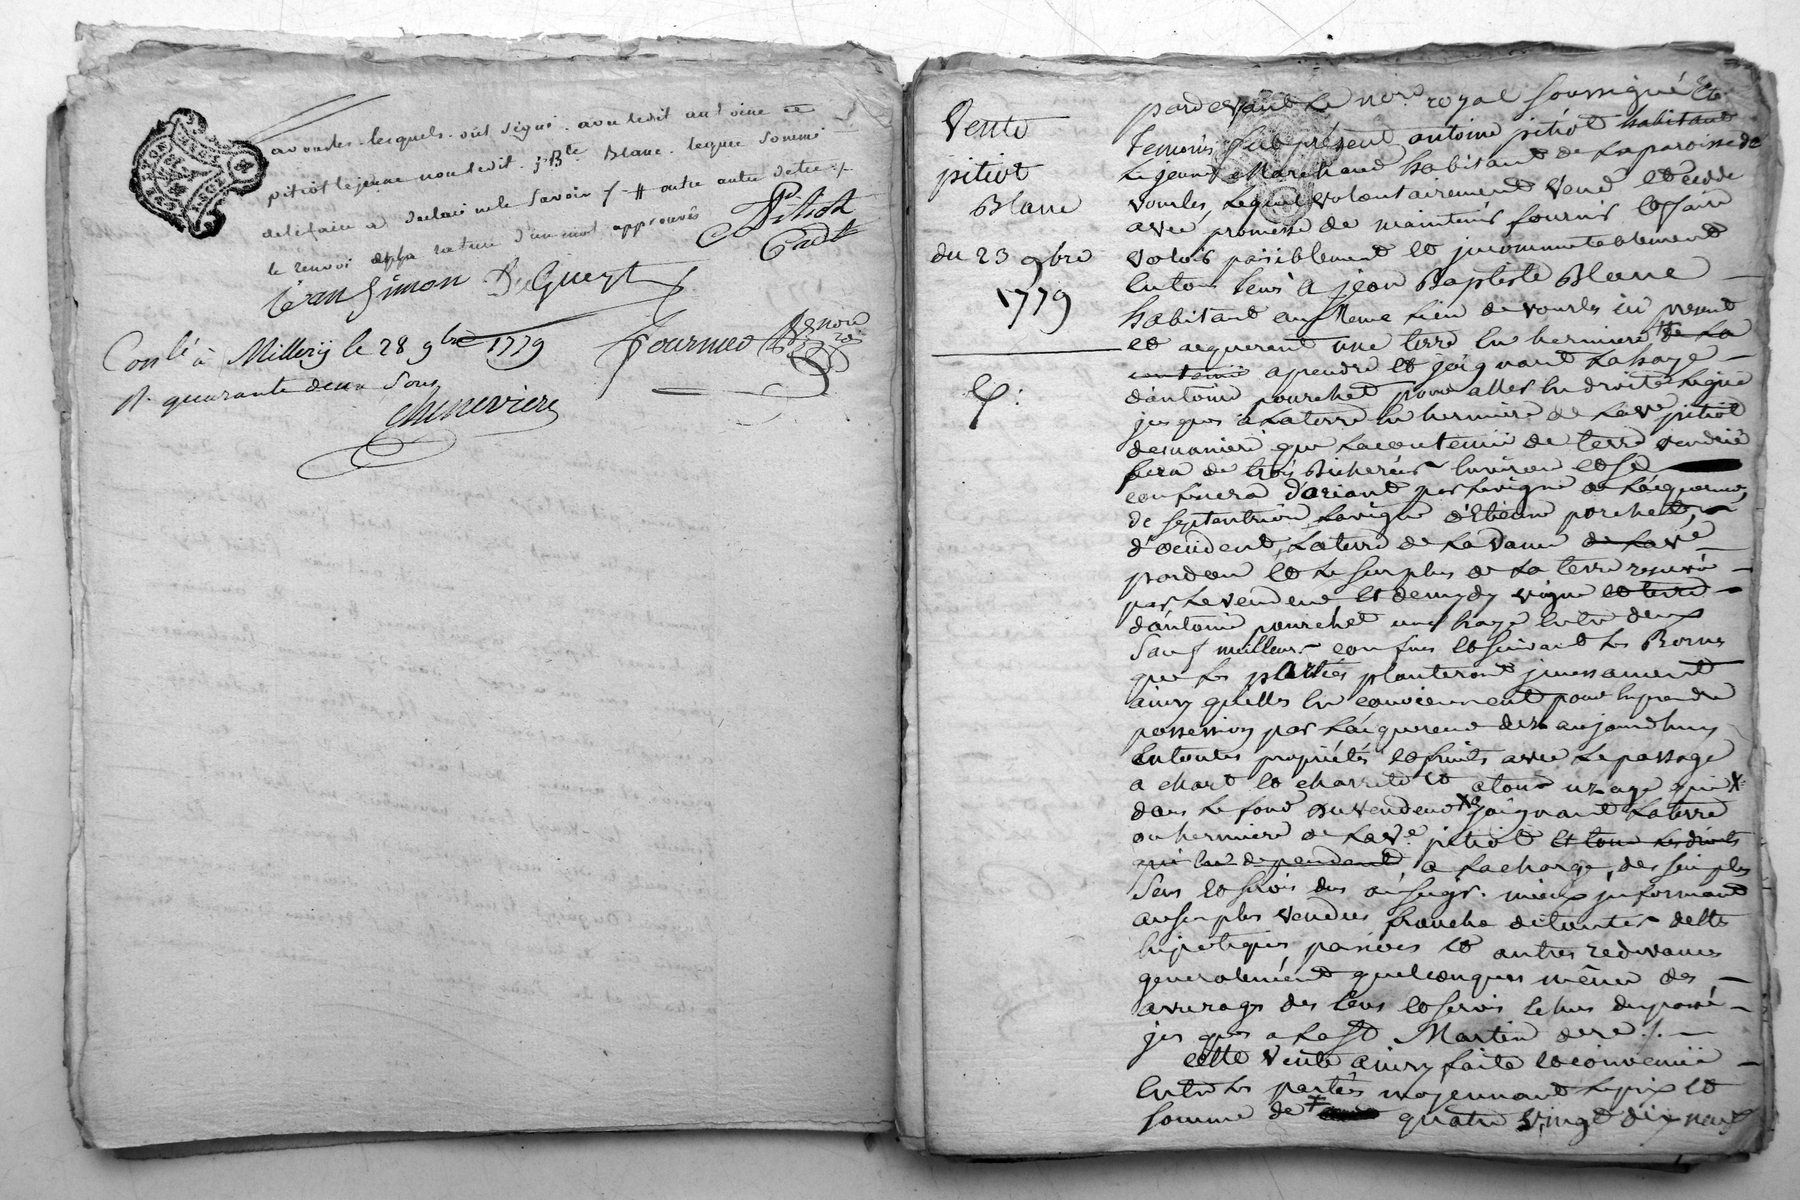 avondes lesquels ont signé avec ledit antoine
pitiot le jeune non ledit j. Bte Blanc lequel sommé
de le faire a declaré ne le savoir
le renvoi rature d'un mot approuvés
Pitiot
Cadt
jean Simon DuGueyt
fournieo
Conlé à Millery le 28 9bre 1779
R. quarante deux sous
Chenevière
Vente
pitiot
Blanc
du 23 9bre
1779
pardevant le nore royal soussigné et
temoins fut présent antoine pitiot habitant
le jeune Marchand habitant de la paroisse de
vourles, lequel volontairement vend et cede
avec promesse de maintenir fournir et faire
valoir paisiblement et incommutablement
en tous lieux a jean Baptiste Blanc
habitant au meme lieu de vourles ici present
et acquerant une terre en hermiere de la
contenue a prendre et joignant la haye
d'antoine pourchet pour aller en droite ligne
jusques a la terre en hermiere de la ve pitiot
de maniere que la contenue de terre vendue
sera de trois Bicherées environ et se
confinera d'oriant par la vigne de l'acquereur,
de septentrion la vigne d'Etienne porchet,
d'occident, la terre de la dame de la ve
pardon et le surplus de la terre reservée
par le vendeur et de mydy vigne et terre
d'antoine pourchet une haye entre deux
sauf meilleurs confins et suivant les Bornes
que les parties planteront incessament
ainsy quelles en conviennent pour en prendre
possession par l'acquereur dez aujourdhuy
en toutes propriétés et fruits avec le passage
a chart et charrete et a tout uzage
dans le fond du vendeur joignant la terre
ou hermiere de la ve pitiot et tous les droits
qui en dependent, a la charge, des simples
cens et servis dus
au surplus vendu franche de toutes dettes
hipoteques passives et autres redevances
generalement quelconques même des
arrerages des cens et servis
jusques a la St Martin
cette vente ainsy faite et convenue
entre les parties moyennant le prix et
somme de quatre vingt dix neuf